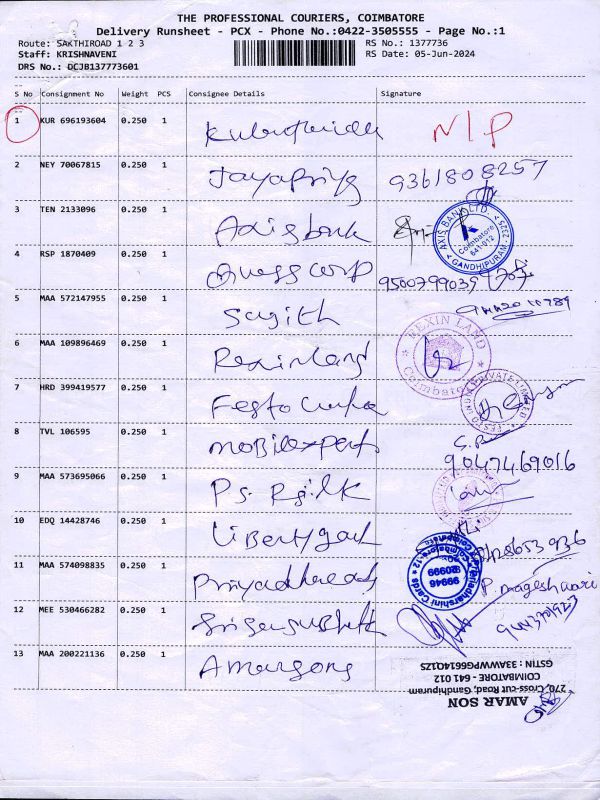 THE PROFESSIONAL COURIERS, COIMBATORE
Delivery Runsheet - PCX - Phone No.:0422-3505555 - Page No.:1
Route: SAKTHIROAD 1 2 3 RS No.: 1377736
Staff: KRISHNAVENI RS Date: 05-Jun-2024
DRS No.: DCJB137773601
S No Consignment No Weight PCS Consignee Details Signature
1 KUR 696193604 0.250 1 N/P
2 NEY 70067815 0.250 1 Jayapriya 9361808257
3 TEN 2133096 0.250 1 Axis bank
AXIS BANK LTD. Coimbatore 641 012 GANDHIPURAM
4 RSP 1870409 0.250 1 Quess corp 9500799039
5 MAA 572147955 0.250 1 Sajith
6 MAA 109896469 0.250 1 Rexinland
REXIN LAND Coimbatore
7 HRD 399419577 0.250 1 Festo
8 TVL 106595 0.250 1 mobilexpert
9047469016
9 MAA 573695066 0.250 1
10 EDQ 14428746 0.250 1
11 MAA 574098835 0.250 1
Priyadharshini Cards
99946
80999
P. mageshwari
12 MEE 530466282 0.250 1
13 MAA 200221136 0.250 1 Amarsons
AMAR SON
270, Cross-cut Road, Gandhipuram
COIMBATORE - 641 012